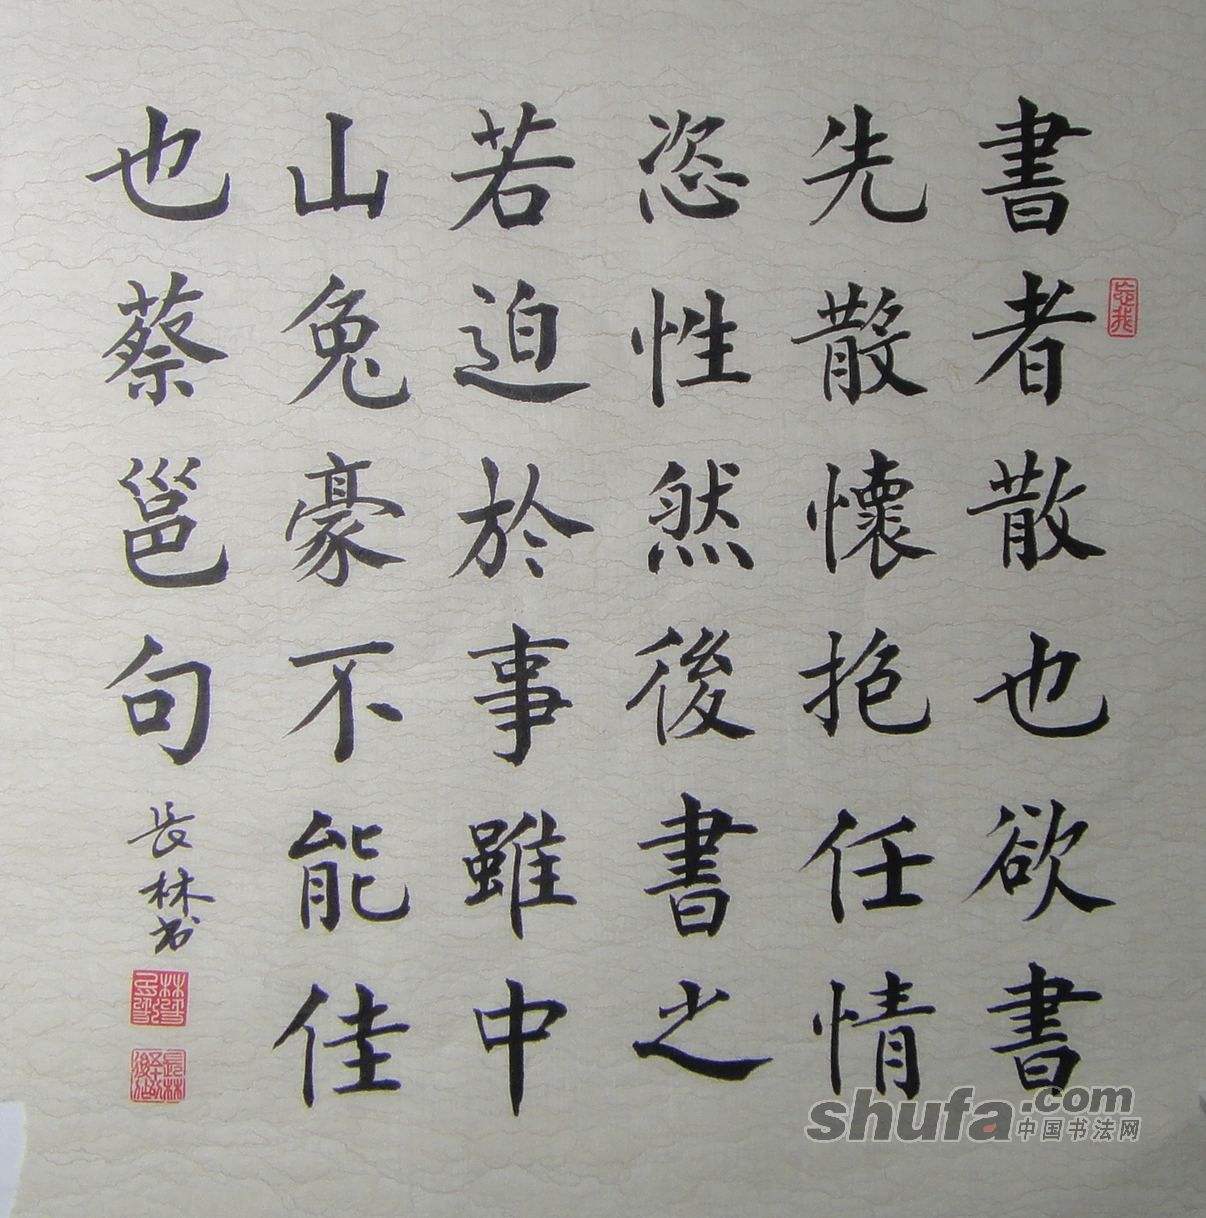 書者散也欲書
先散懷抱任情
恣性然後書之
若迫於事雖中
山兔豪不能佳
也蔡邕句
長林书
忘我
shufa.com
中国书法网